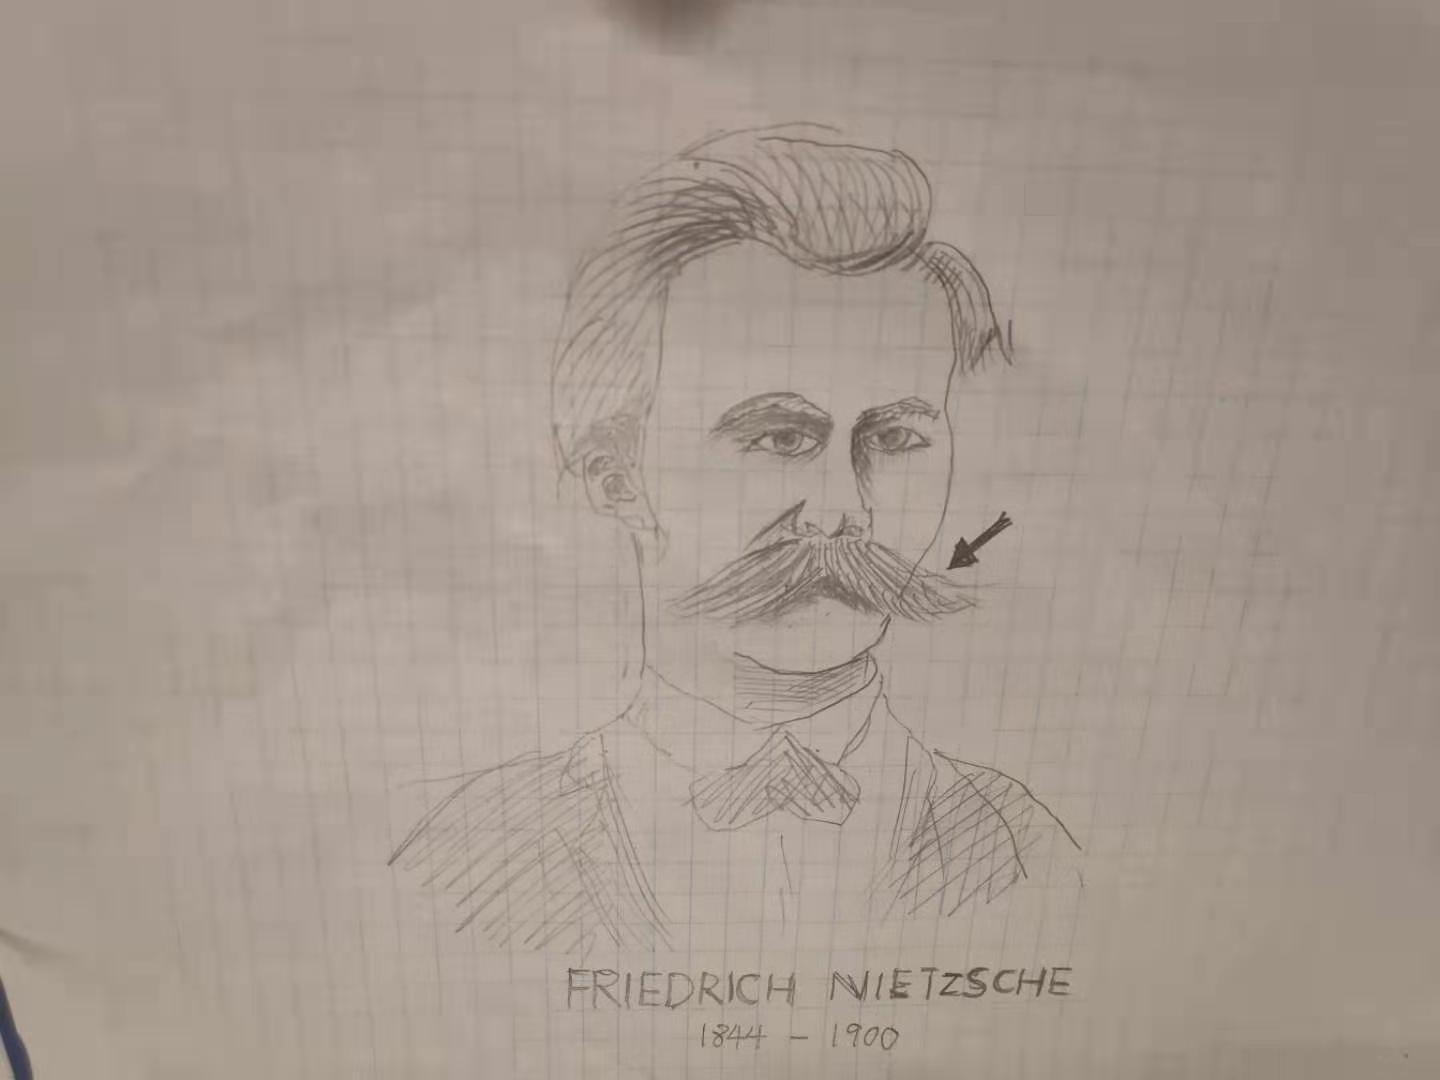 FRIEDRICH NIETZSCHE
1844 - 1900